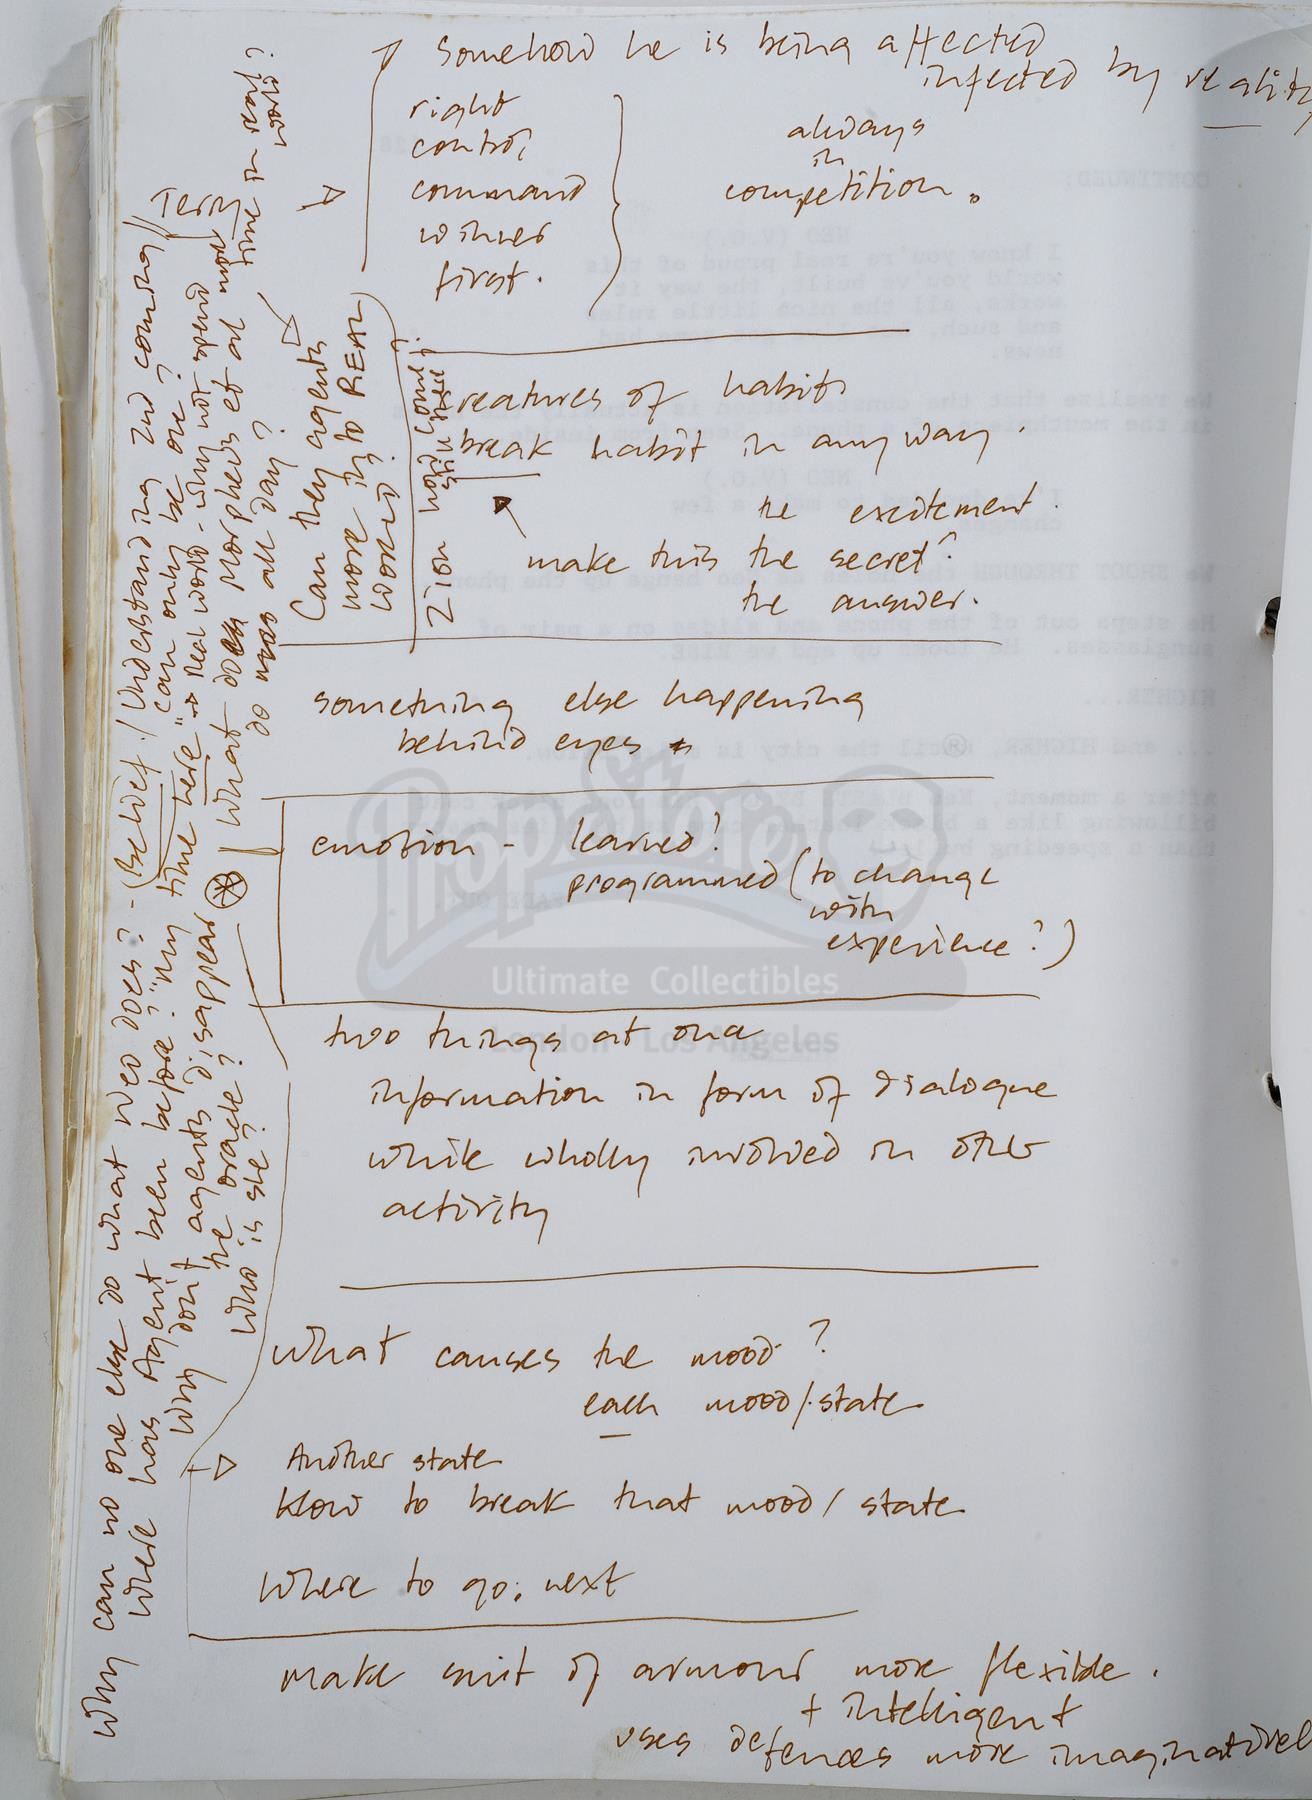 Somehow he is being affected
infected by reality
right
control
command
winner
first.
always
in
competition.
creatures of habit
break habit in any way
the excitement.
make this the secret?
the answer.
something else happening
behind eyes
emotion - learned?
programmed (to change
with
experience?)
two things at once
information in form of dialogue
while wholly involved in other
activity
What causes the mood?
each mood/state
Another state
How to break that mood/state
Where to go; next
make suit of armour more flexible.
+ intelligent
uses defences more imaginatively
Why can no one else do what Neo does? - (Belief / Understanding 2nd coming //
Where has Agent been before? "my time here" → real world - why not spend more time in real world?
can only be one?
Why don't agents disappear
the oracle?
Who is she?
What does Morpheus et al
do all day?
Can they agents
move into REAL
WORLD?
Zion how come
still there?
CONTINUED:
28.
NEO (V.O.)
I know you're real proud of this
world you've built, the way it
works, all the nice little rules
and such, but I've got some bad
news.
We realize that the constellation is actually
in the mouthpiece of a phone. Seen from inside.
NEO (V.O.)
I've decided to make a few
changes.
We SHOOT THROUGH the holes as Neo hangs up the phone.
He steps out of the phone and slides on a pair of
sunglasses. He looks up and we RISE.
HIGHER...
... and HIGHER, until the city is below.
After a moment, Neo
billowing like a black
than a speeding
FADE OUT.
PropStore
®
Ultimate Collectibles
London · Los Angeles